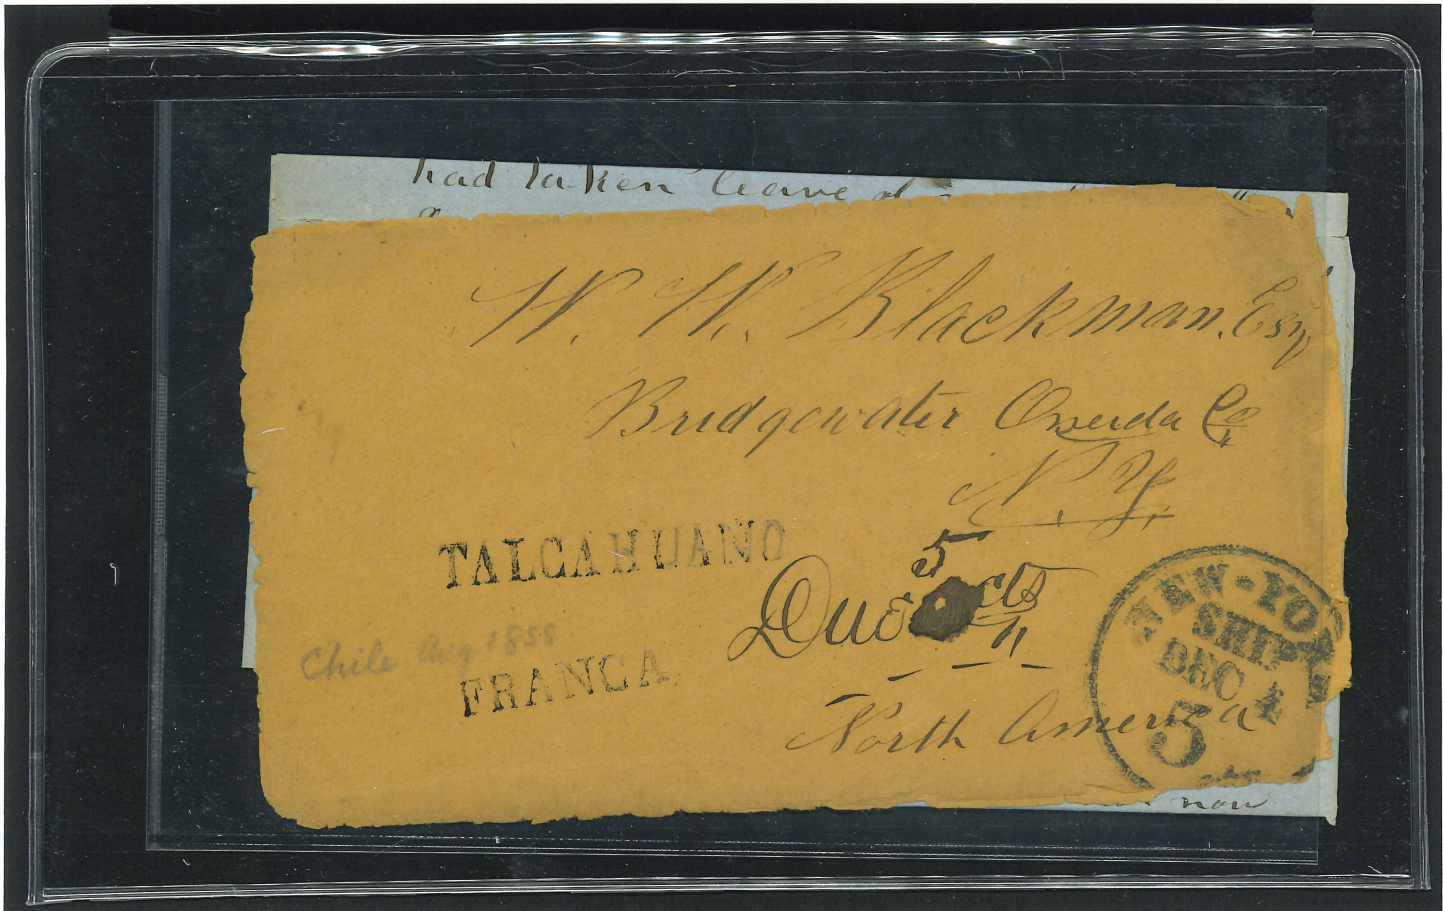 had taken leave of
W. W. Blackman, Esq
Bridgewater Oneida Co
N. Y.
TALCAHUANO
5
Due cts
Chile Aug 1855
FRANCA
North America
NEW-YORK
SHIP
DEC 4
5
cts
now